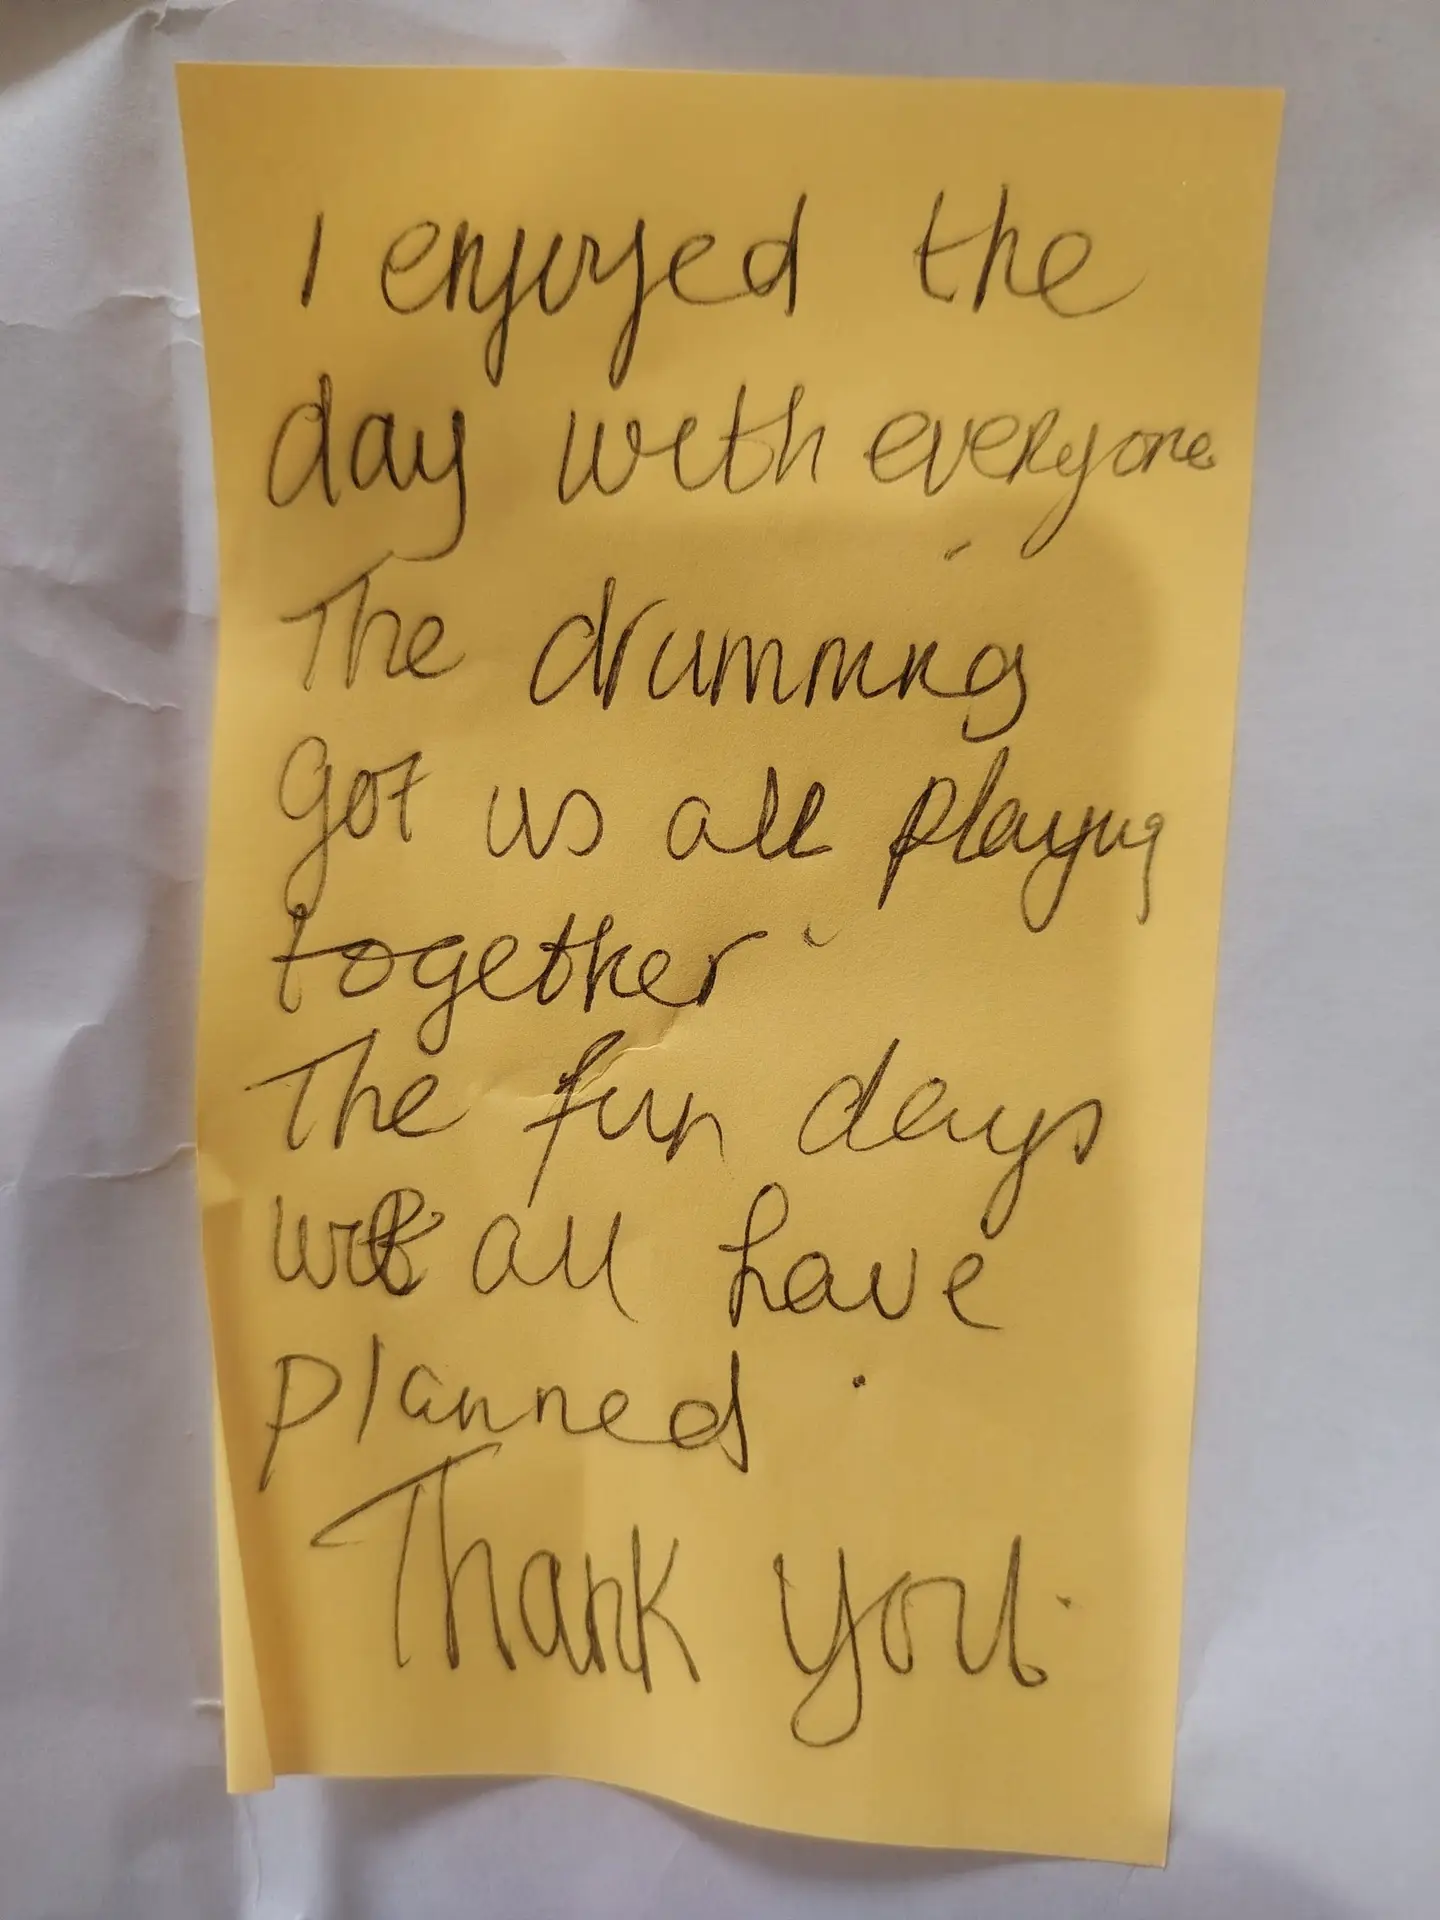 I enjoyed the
day with everyone
The drumming
got us all playing
together
The fun days
we all have
planned.
Thank you.